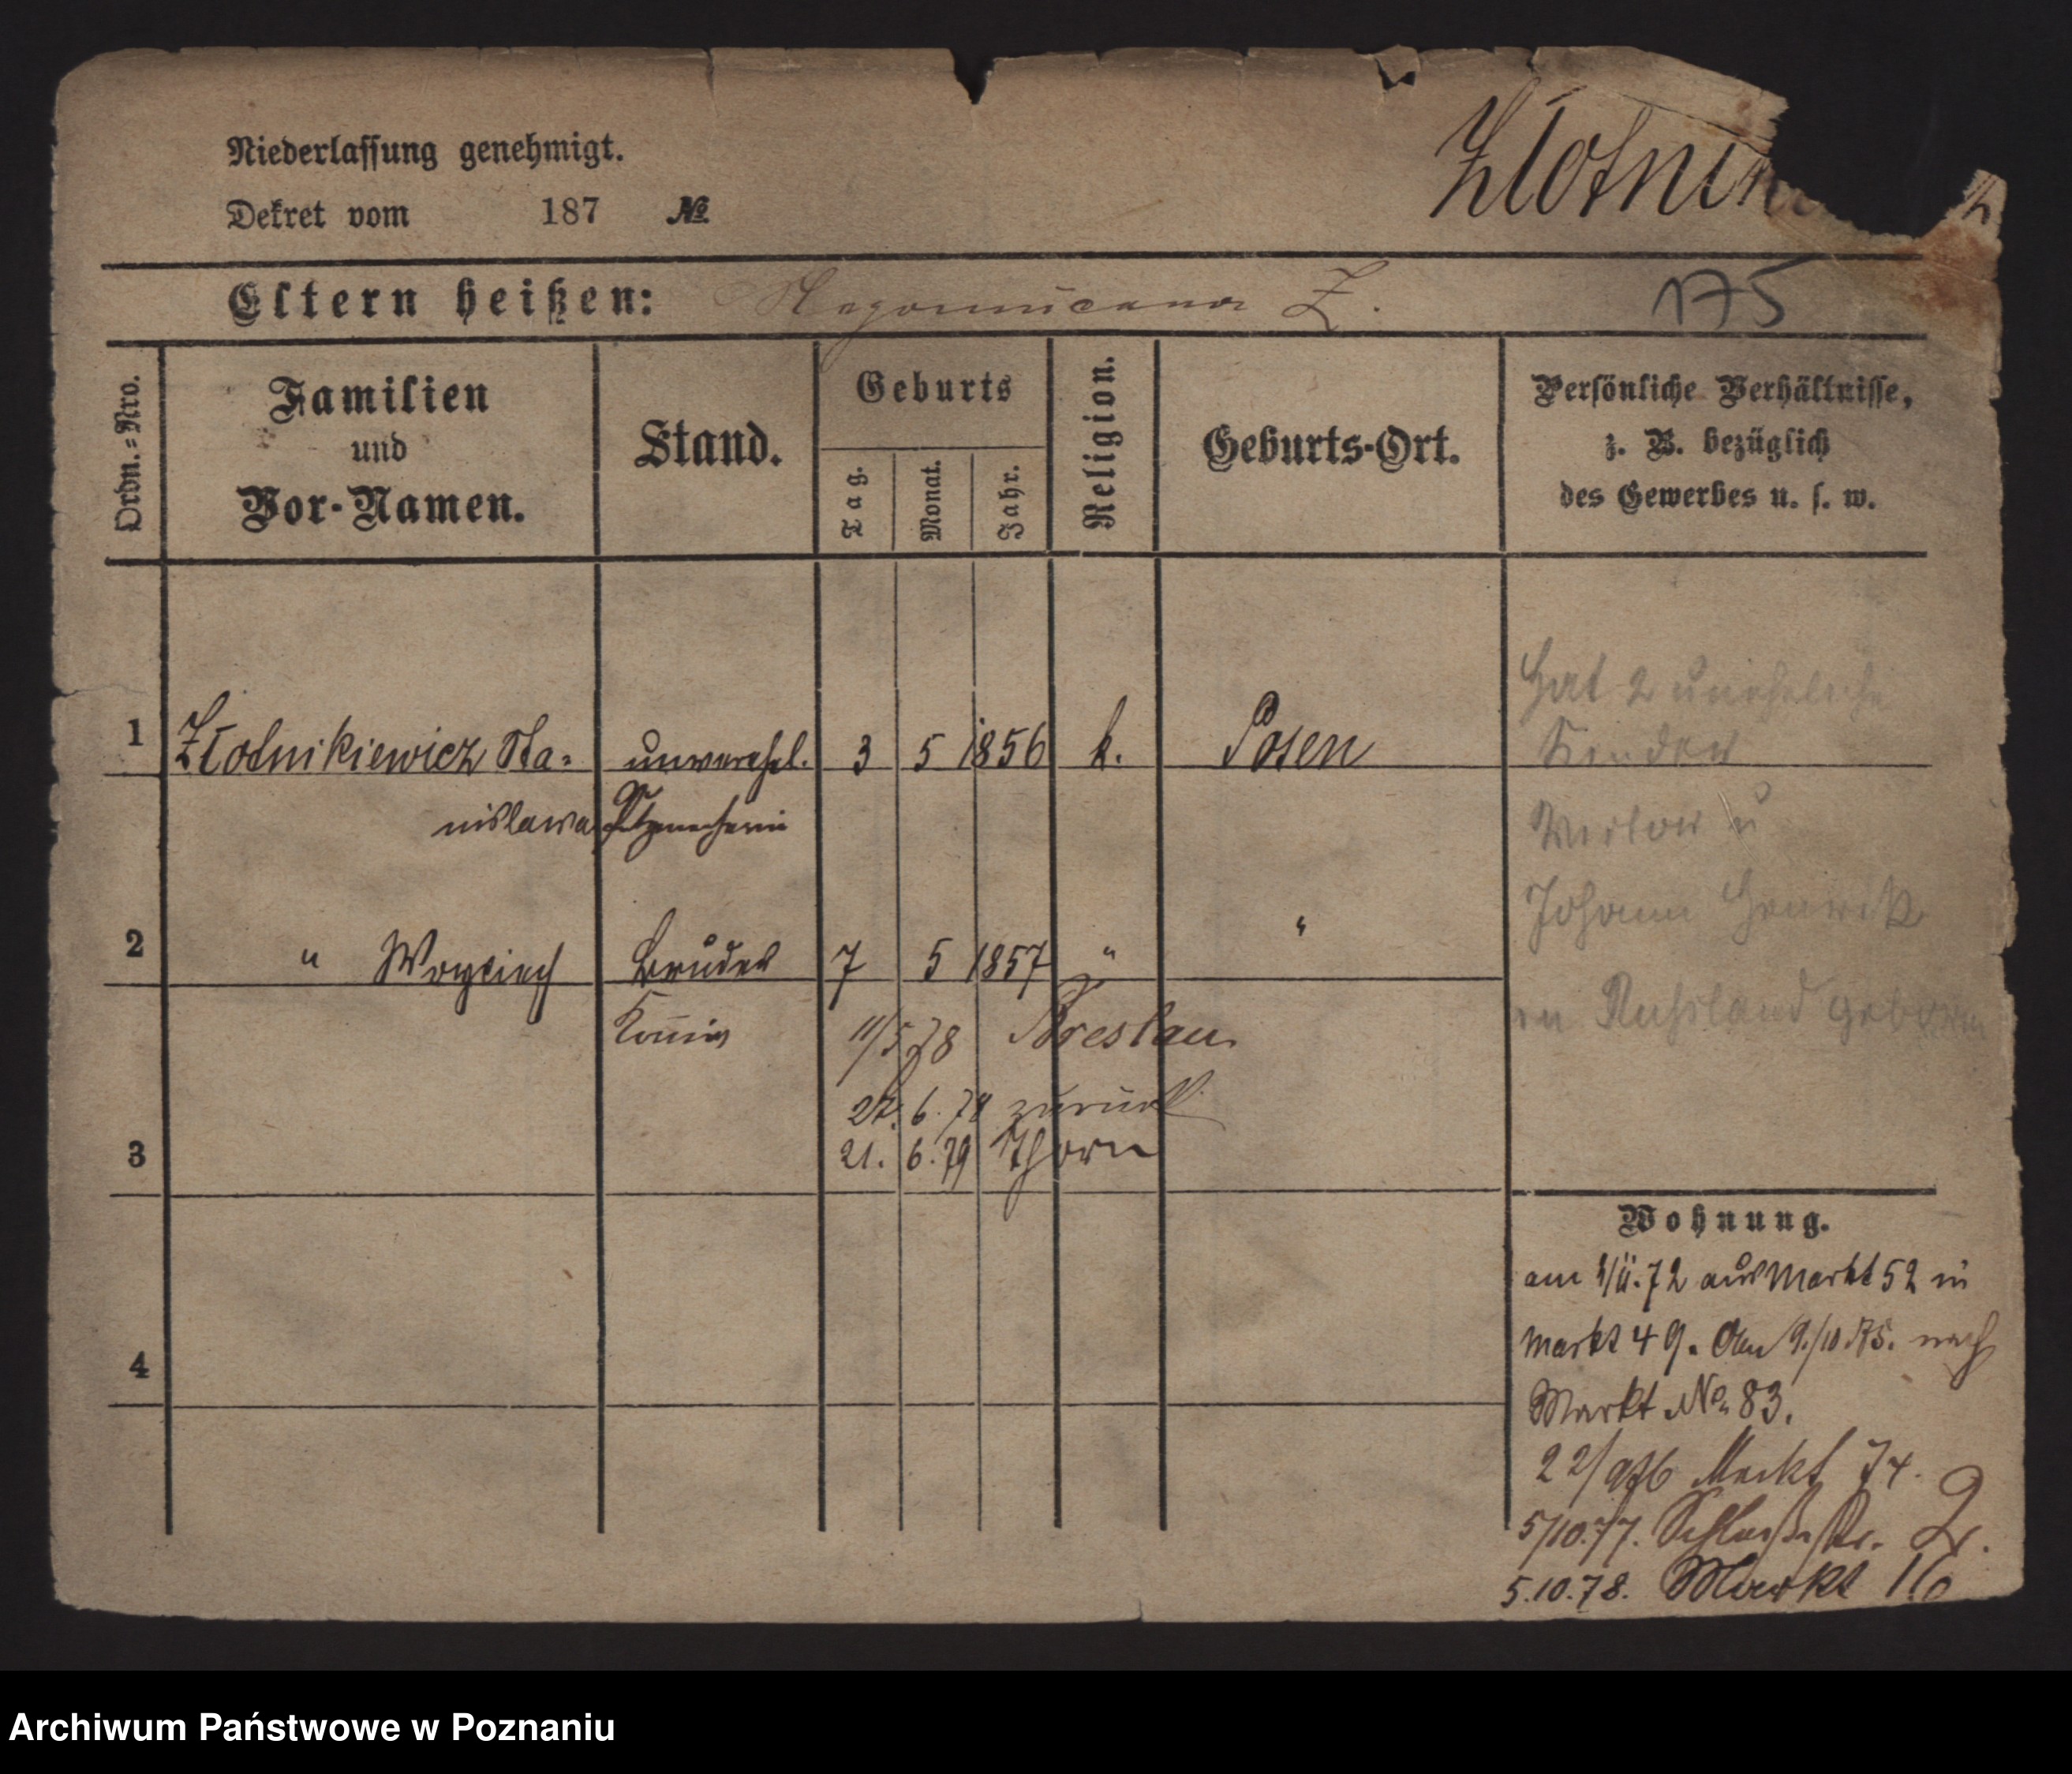 Niederlassung genehmigt.
Dekret vom 187 №
Złotni
175
Eltern heißen: Z.
Ordn.=Nro.
Familien
und
Vor-Namen.
Stand.
Geburts
Tag.
Monat.
Jahr.
Religion.
Geburts-Ort.
Persönliche Verhältnisse,
z. B. bezüglich
des Gewerbes u. s. w.
1 Złotnikiewicz Sta= unverehel. 3 5 1856 k. Posen
nislawa Putzmacherin
Hat 2 uneheliche
Kinder
u
Johann
in Russland geboren
2 " Woyciech Bruder 7 5 1857 " "
Commis 11/5 78 Breslau.
22. 6. 78 zurück
21. 6. 79 Thorn
3
4
Wohnung.
am 1/11. 72 aus Markt 52 in
Markt 49. Am 9./10.75. nach
Markt No. 83.
22/9 76 Markt 74.
5/10.77. Schloßstr. 2.
5.10.78. Markt 16
Archiwum Państwowe w Poznaniu